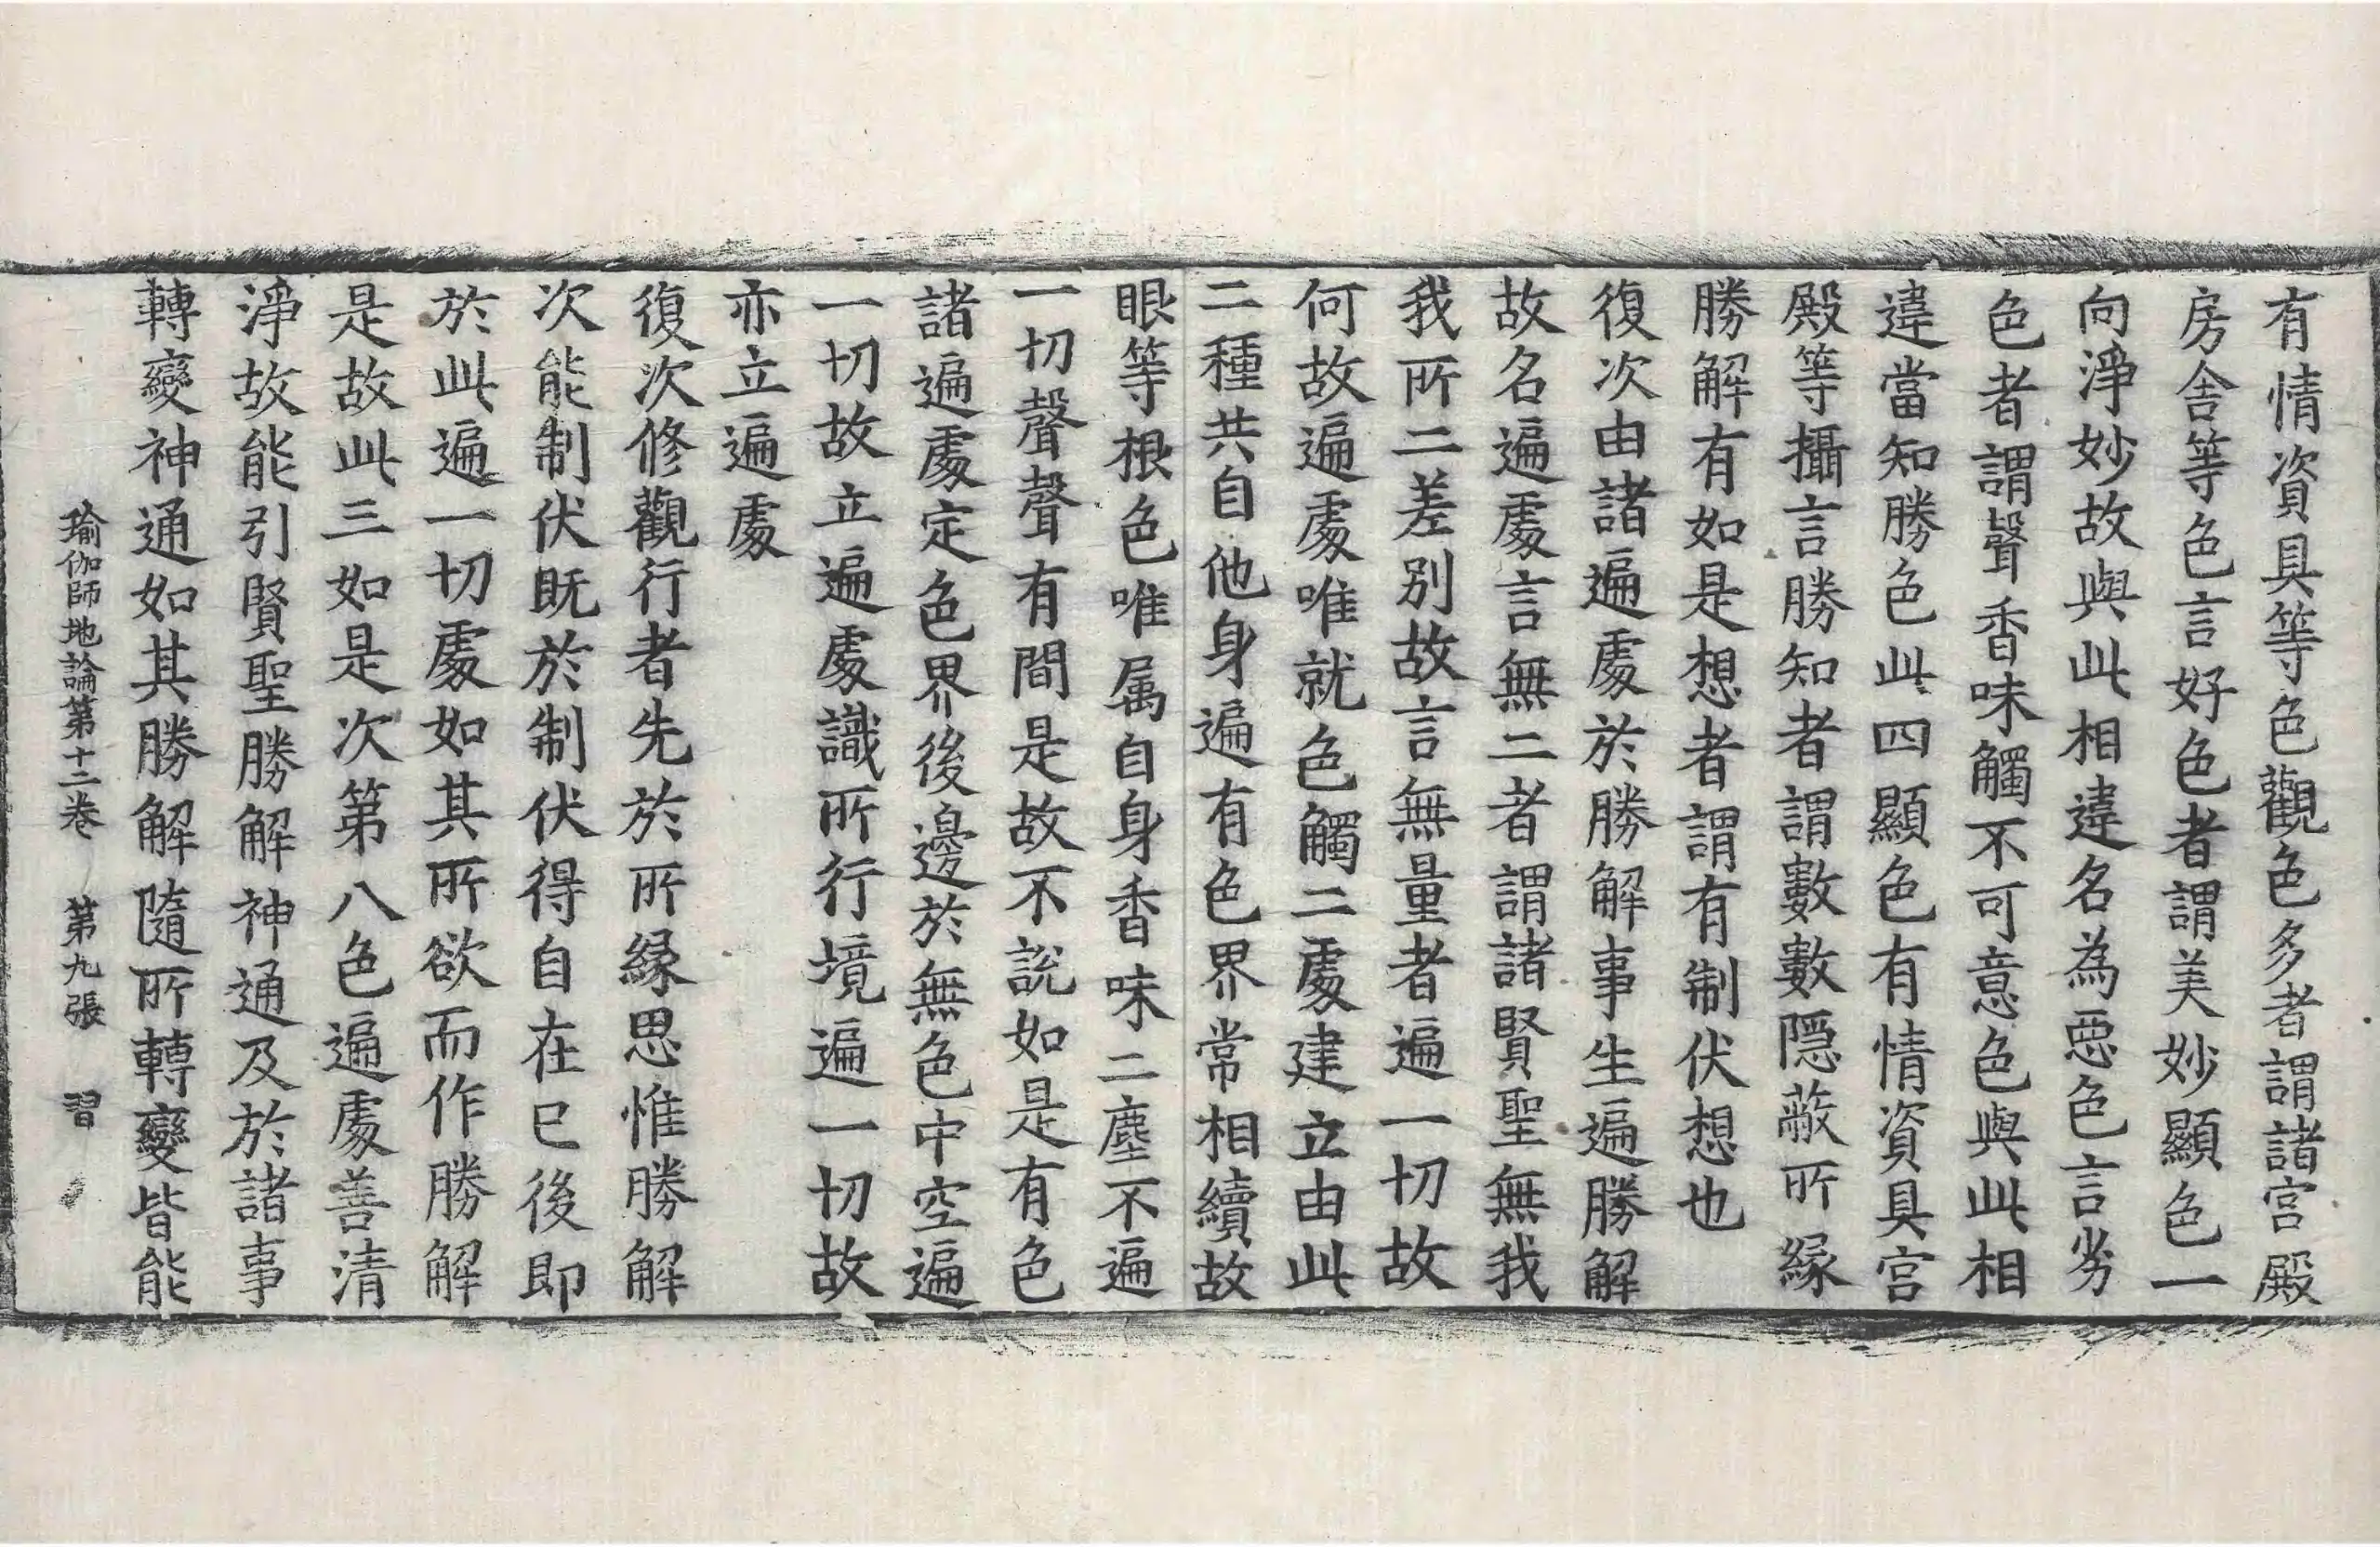 有情資具等色觀色多者謂諸宮殿
房舍等色言好色者謂美妙顯色一
向淨妙故與此相違名為惡色言劣
色者謂聲香味觸不可意色與此相
違當知勝色此四顯色有情資具宮
殿等攝言勝知者謂數數隱蔽所緣
勝解有如是想者謂有制伏想也
復次由諸遍處於勝解事生遍勝解
故名遍處言無二者謂諸賢聖無我
我所二差別故言無量者遍一切故
何故遍處唯就色觸二處建立由此
二種共自他身遍有色界常相續故
眼等根色唯属自身香味二塵不遍
一切聲聲有間是故不說如是有色
諸遍處定色界後邊於無色中空遍
一切故立遍處識所行境遍一切故
亦立遍處
復次修觀行者先於所緣思惟勝解
次能制伏既於制伏得自在已後即
於此遍一切處如其所欲而作勝解
是故此三如是次第八色遍處善清
淨故能引賢聖勝解神通及於諸事
轉變神通如其勝解隨所轉變皆能
瑜伽師地論第十二卷 第九張 習